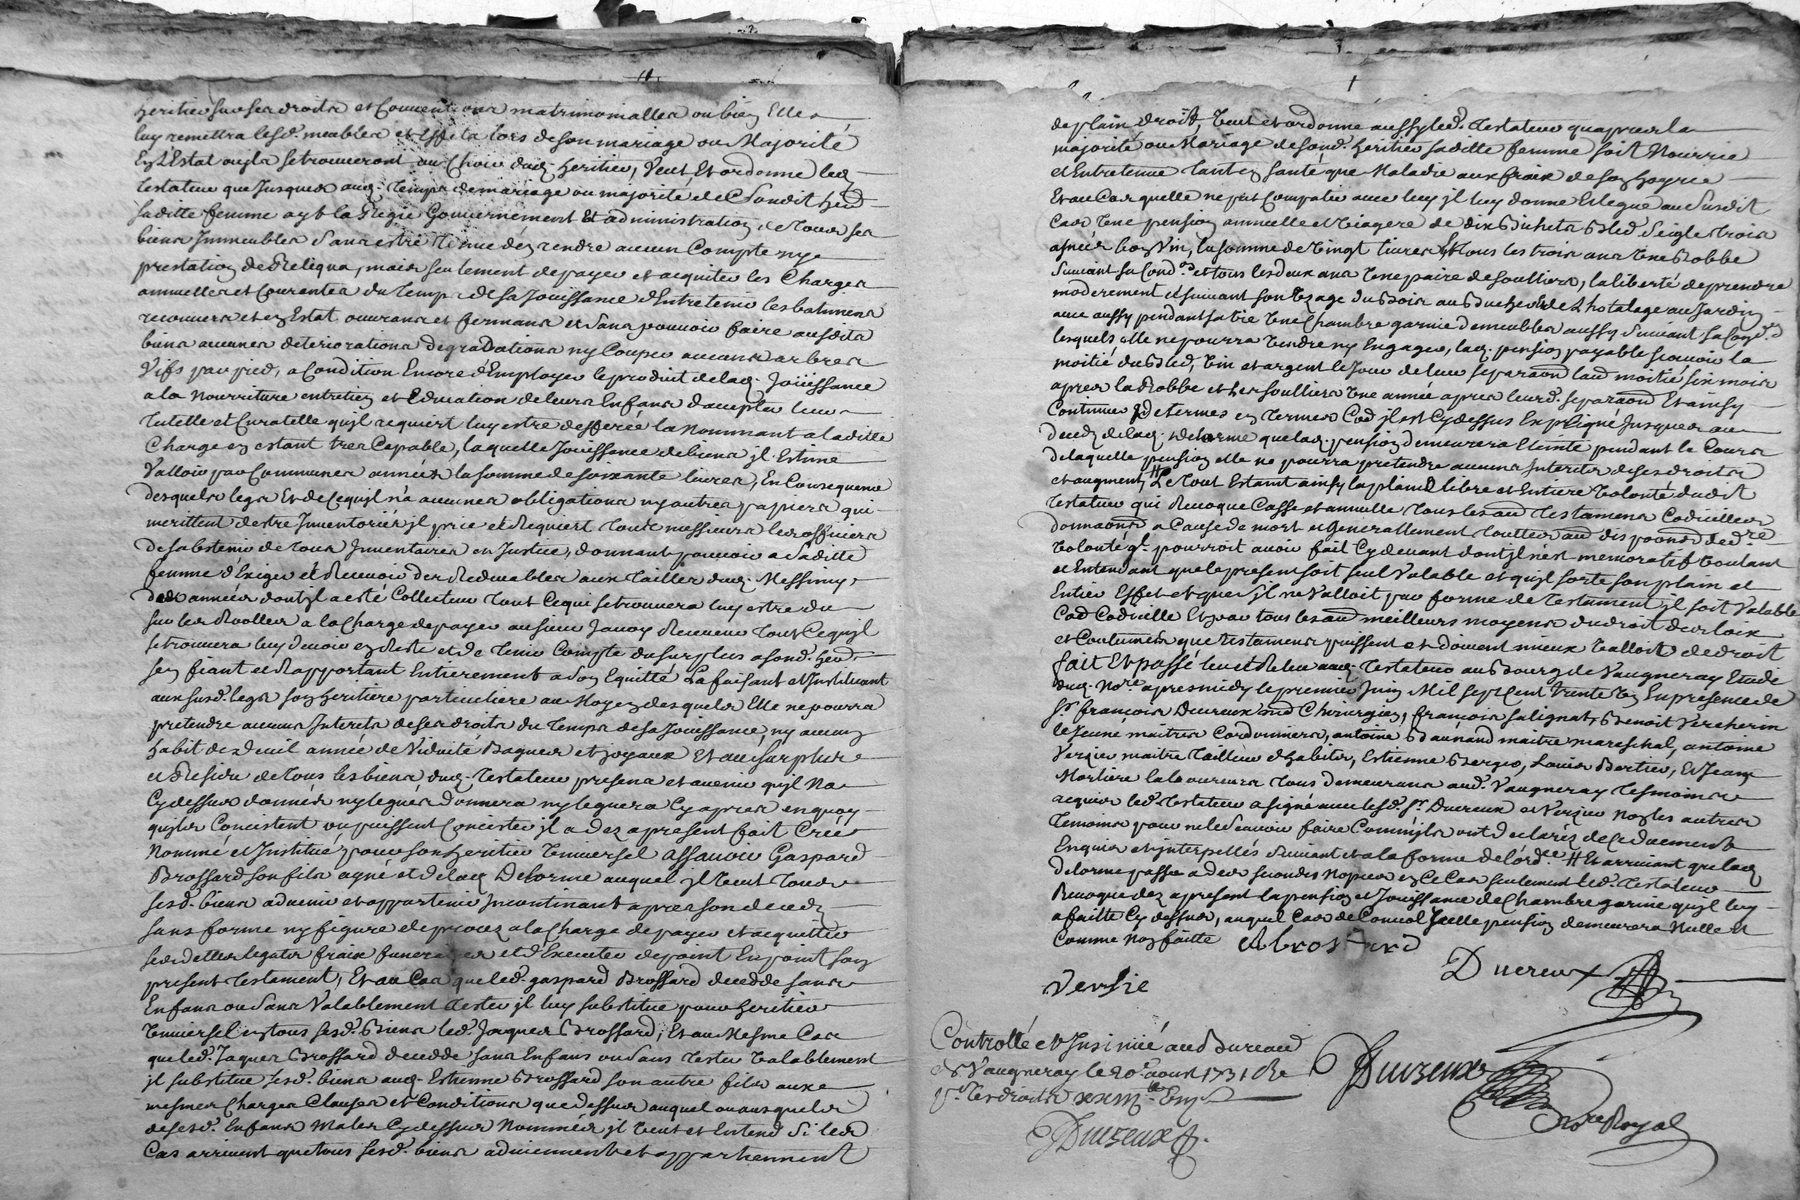 heritier sur ses droits et Conventions matrimonialles ou bien Elle
luy remettra lesd. meubles et effets lors de son mariage ou Majorité
En L'Estat ou jls se trouveront au Choix dud. heritier, Veut Et ordonne led.
testateur que Jusques aud. Temps de mariage ou majorité de sondit herit.
saditte femme ayt la Regie Gouvernement Et administration de tous ses
biens Immeubles Sans estre tenue d'en rendre aucun Compte ny
prestation de Reliqua, mais seulement de payer et acquiter les Charges
annuelles et Courantes du temps de sa Jouissance d'Entretenir les batimens
recouvers et en Estat ouvrans et fermans et Sans pouvoir faire ausdits
biens aucunes deteriorations degradations ny Couper aucuns arbres
Vifs par pied, a Condition Encore d'Employer le produit de lad. Joüissance
a la Nourriture entretien et Education de leurs Enfans d'accepter leur
Tutelle et Curatelle qu'jl requiert luy estre defferée la Nommant a laditte
Charge en estant tres Capable, laquelle Jouissance de biens jl Estime
Valloir par Communes années la somme de soixante livres, En Consequence
desquels legs Et de Ce qu'jl n'a aucunes obligations ny autres papiers qui
merittent d'estre Inventoriés jl prie et Requiert tous messieurs les officiers
de s'abstenir de tous Inventaires en Justice, donnant pouvoir a saditte
femme d'Exiger et Recevoir des Redevables aux tailles dud. Messimy
des années dont jl a esté Collecteur tout Ce qui se trouvera luy estre du
sur les Roolles a la Charge de payer au sieur Janoy Receveur tout Ce qu'jl
se trouvera luy devoir en Reste et de tenir Compte du surplus a sond. herit.
s'en fiant et Rapportant Entierement a son Equitté La faisant et Instituant
aux susd. legs son heritiere particuliere au Moyen desquels Elle ne pourra
pretendre aucuns Interets de ses droits du Temps de sa Jouissance, ny aucun
habit de deuil année de Viduité Bagues et joyaux Et au surplus
et Residu de tous les biens dud. testateur presens et avenir qu'jl N'a
Cy dessus donnés ny legués donnera ny leguera Cy apres en quoy
qu'jls Concistent ou puissent Concister jl a dez a present fait Creé
Nommé et Institué pour son heritier Universel assavoir Gaspard
Brossard son fils ayné et de lad. Delorme auquel jl veut tous
sesd. biens advenir et appartenir Incontinant apres son decedz
sans forme ny figure de procez a la Charge de payer et acquitter
ses dettes legats fraix funeraires et d'Executer de point En point son
present testament, Et au Cas que led. gaspard Brossard decedde sans
Enfans ou Sans Valablement tester jl luy substitue pour heritier
Universel en tous sesd. Biens led. Jacques Brossard, Et au Mesme Cas
que led. Jaques Brossard decedde sans Enfans ou Sans tester Valablement
jl substitue sesd. biens aud. Estienne Brossard son autre fils aux
mesmes Charges Clauses et Conditions que dessus auquel ou ausquels
de sesd. Enfans Males Cy dessus Nommés jl Veut et Entend Si led.
Cas arrivent que tous sesd. biens adviennent et appartiennent
de plain droit, Veut et ordonne aussy led. testateur qu'apres la
majorité ou Mariage de sond. heritier saditte femme soit Nourrie
et Entretenue tant en santé que Maladie aux fraix de son hoyrie
Et au Cas qu'elle ne put Compatir avec luy jl luy donne Et legue au Susdit
Cas Une pension annuelle et Viagere de dix Bichets Bled Seigle trois
asnées bon Vin, la somme de Vingt livres et tous les trois ans Une Robbe
Suivant sa Cond.on et tous les deux ans Une paire de soulliers, la liberté de prendre
moderement et suivant son Usage du Bois au Bucher et de L'hotalage au Jardin
avec aussy pendant sa vie Une Chambre garnie de meubles aussy Suivant sa Cond.on
lesquels elle ne pourra Vendre ny Engager, lad. pension payable sçavoir la
moitié du Bled, Vin et argent le Jour de leur separaon lautre moitié six mois
apres la Robbe et les soulliers Une année apres leurd. separaon Et ainsy
Continuer de termes en termes Co'e jl est Cy dessus Expliqué Jusques au
decedz de lad. Delorme que lad. pension demeurera Eteinte pendant le Cours
de laquelle pension elle ne pourra pretendre aucuns Interets de ses droits
et augment, Le tout Estant ainsy la plaine libre et Entiere Volonté dudit
testateur qui Revoque Casse et annulle tous les au'es testamens Codicilles
donnaons a Cause de mort et Generallement touttes au'es dispoons de d.re
Volonté q'l pourroit avoir fait Cy devant dont jl n'est memoratif Voulant
et Entendant que le present soit seul Valable et qu'jl sorte son plain et
Entier Effet et que s'jl ne Valloit par forme de testament jl soit Valable
Co'e Codicille Et par tous les au'es meilleurs moyens du droit des loix
et Coutumes que testamens puissent et doivent mieux Valloir de droit
fait Et passé leu et Releu aud. testateur au Bourg de Vaugneray Etude
dud. No.re apres midy le premier Juin Mil sept Cent trente Un En presence de
Sr. françois Ducreux Chirurgien, françois salignat, Benoit Vercherin
le Jeune maitres Cordonniers, antoine Bdaunand maitre mareschal, antoine
Verzier maitre tailleur d'habits, Estienne Berger, Louis Bertier, Et Jean
Mortiere laboureurs tous demeurans aud. Vaugneray tesmoins
acquier led. testateur a signé avec lesd. Sr. Ducreux et Verzier non les autres
temoins pour ne le sçavoir faire Comm'jls ont declarez de Ce duement
Enquis et jnterpellés Suivant et a la forme de L'ord.ce # Et arrivant que lad.
Delorme passe a des secondes Nopces en Ce Cas seulement led. testateur
Revoque dez a present la pension et Jouissance de Chambre garnie qu'jl luy
a faitte Cy dessus, auquel Cas de Convol Icelle pension demeurera Nulle et
Comme Non faitte ABrossard
Versié Ducreux
Controllé et Insinué au Bureau
de Vaugneray le 20e aoust 1731
Duizeux
No.re Royal
Duizeux